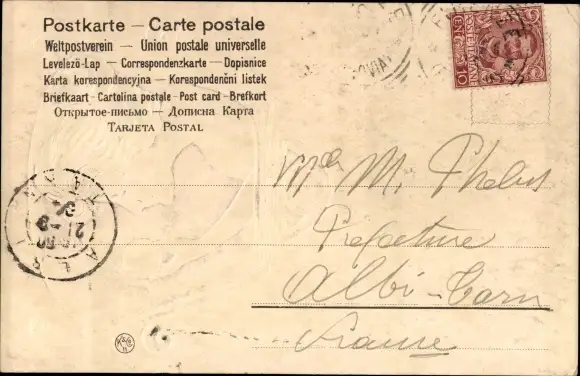 Postkarte – Carte postale
Weltpostverein – Union postale universelle
Levelező-Lap – Correspondenzkarte – Dopisnice
Karta korespondencyjna – Korespondenční listek
Briefkaart – Cartolina postale – Post card – Brefkort
Открытое-письмо – Дописна Карта
Tarjeta Postal
CENT. 10
M. Phalus
Préfecture
Albi – Tarn
France